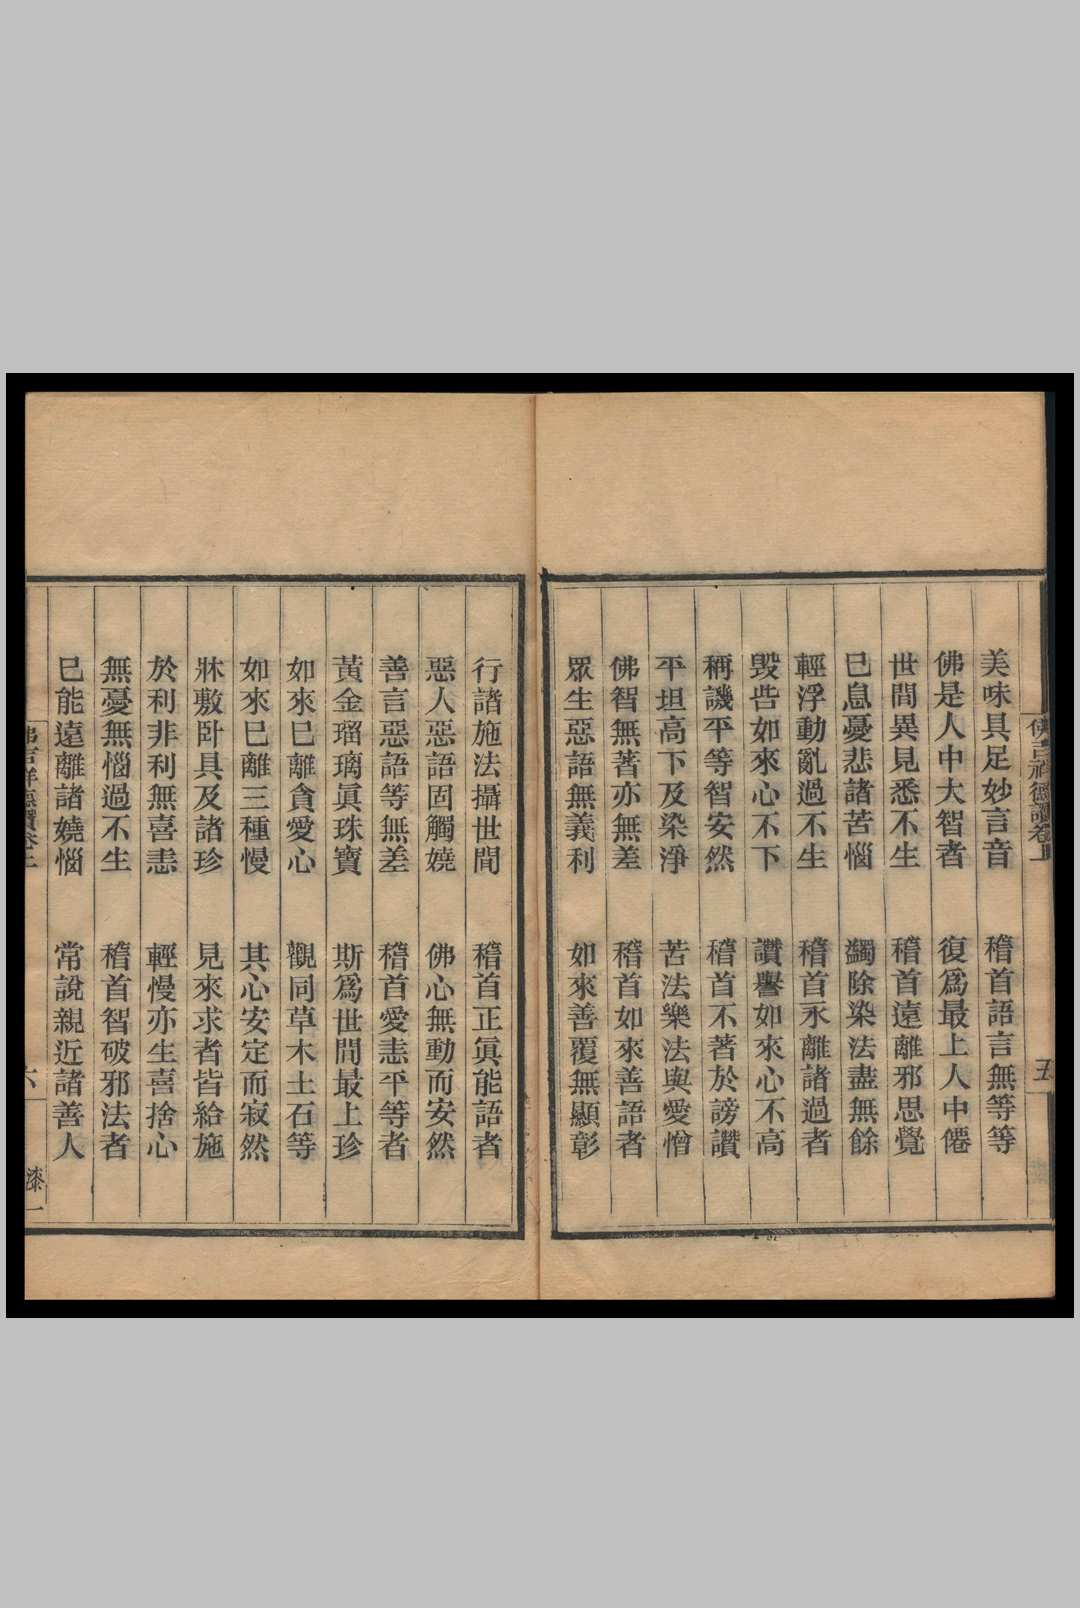 佛吉祥德讚卷上
五
美味具足妙言音　稽首語言無等等
佛是人中大智者　復爲最上人中僊
世間異見悉不生　稽首遠離邪思覺
已息憂悲諸苦惱　蠲除染法盡無餘
輕浮動亂過不生　稽首永離諸過者
毀呰如來心不下　讚譽如來心不高
稱譏平等智安然　稽首不著於謗讚
平坦高下及染淨　苦法樂法與愛憎
佛智無著亦無差　稽首如來善語者
眾生惡語無義利　如來善覆無顯彰
行諸施法攝世間　稽首正眞能語者
惡人惡語固觸嬈　佛心無動而安然
善言惡語等無差　稽首愛恚平等者
黃金瑠璃眞珠寶　斯爲世間最上珍
如來已離貪愛心　觀同草木土石等
如來已離三種慢　其心安定而寂然
牀敷卧具及諸珍　見來求者皆給施
於利非利無喜恚　輕慢亦生喜捨心
無憂無惱過不生　稽首智破邪法者
已能遠離諸嬈惱　常說親近諸善人
佛吉祥德讚卷上
六
漆一